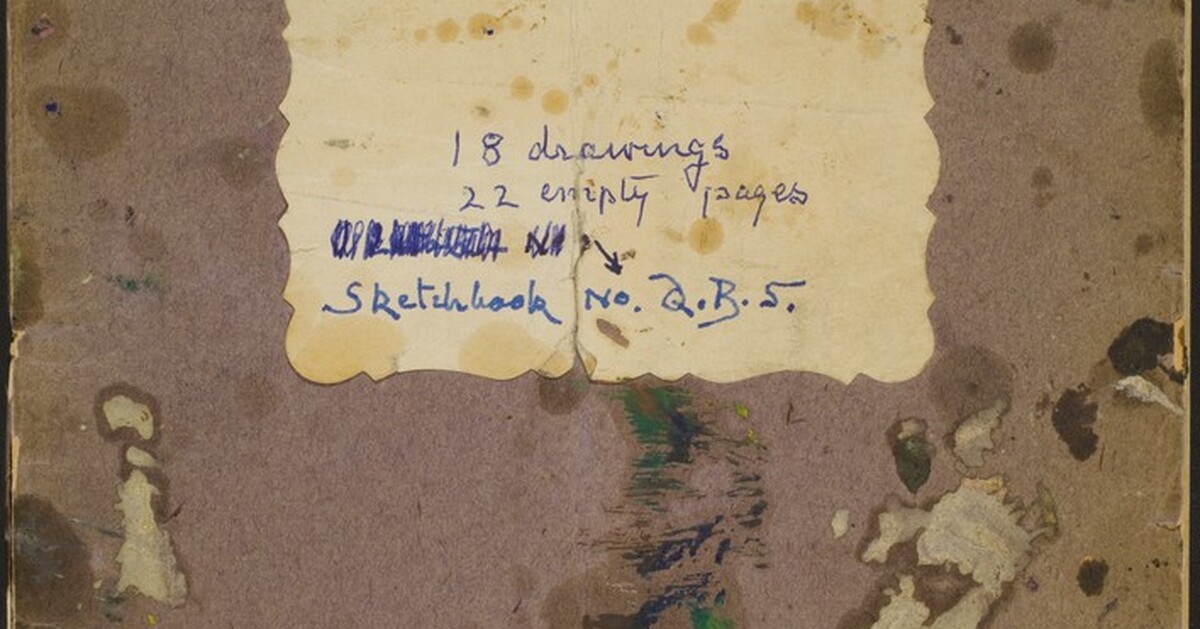 18 drawings
22 empty pages
Sketchbook No. Q.B.5.